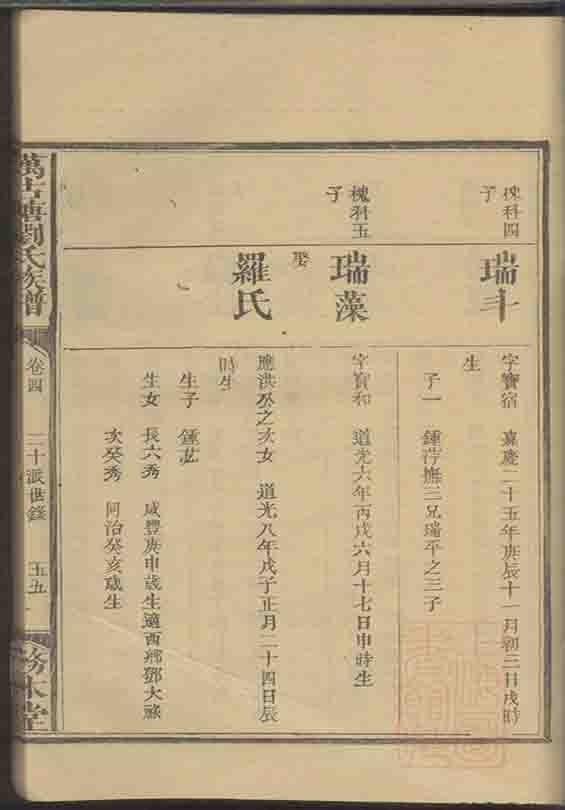 槐科四
子
瑞斗
字寶宿 嘉慶二十五年庚辰十一月初三日戌時
生
子一 鍾芹撫三兄瑞平之三子
槐科五
子
瑞藻
字寶和 道光六年丙戌六月十七日申時生
娶
羅氏
應洪癸之次女 道光八年戊子正月二十四日辰
時生
生子 鍾芸
生女 長六秀 咸豐庚申歲生適西鄉鄧大祿
次癸秀 同治癸亥歲生
萬古塘劉氏族譜
卷四
二十派世錄
五五
務本堂